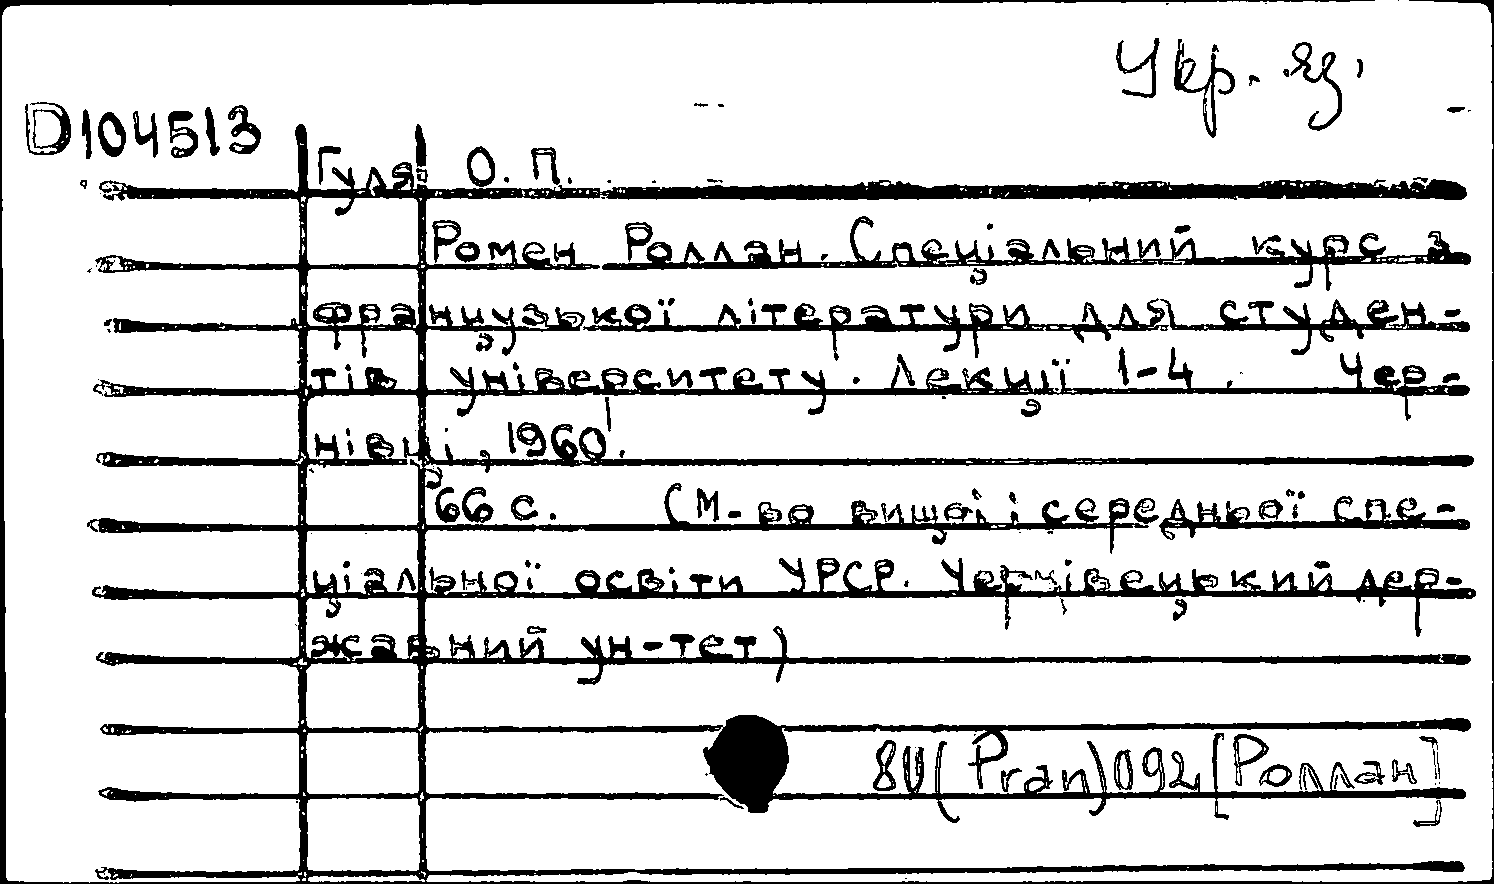 Укр. яз.
D104513
Гуля О. П.
Ромен Роллан. Спеціальний курс з
французької літератури для студен-
тів університету. Лекції 1-4. Чер-
нівці, 1960.
66 с. (М-во вищої і середньої спе-
ціальної освіти УРСР. Чернівецький дер-
жавний ун-тет)
8И(Фran)092[Роллан]